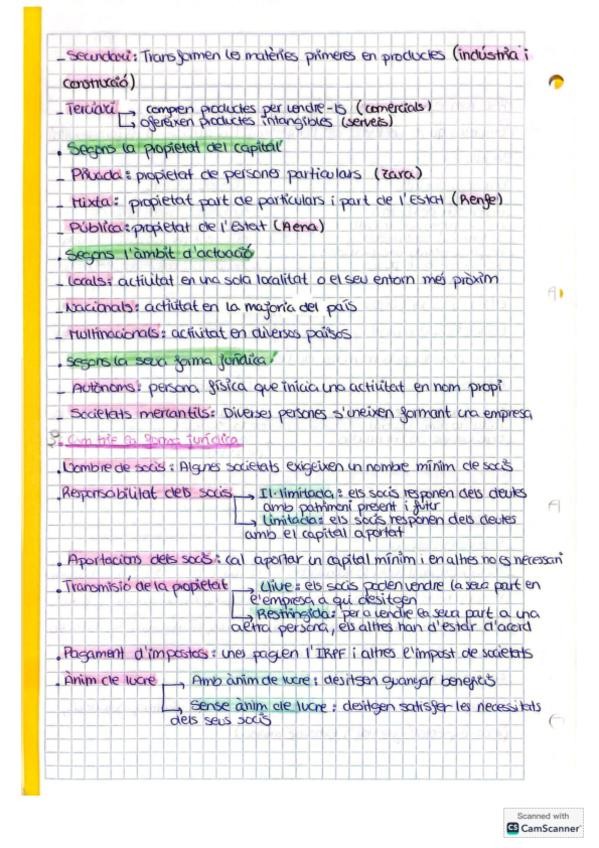 - Secundari: Transformen les matèries primeres en productes (indústria i
construcció)
- Terciari → compren productes per vendre-ls (comercials)
→ ofereixen productes intangibles (serveis)
• Segons la propietat del capital
- Privada: propietat de persones particulars (Zara)
- Mixta: propietat part de particulars i part de l'Estat (Renfe)
- Pública: propietat de l'Estat (Aena)
• Segons l'àmbit d'actuació
- Locals: activitat en una sola localitat o el seu entorn més pròxim
- Nacionals: activitat en la majoria del país
- Multinacionals: activitat en diversos països
• Segons la seva forma jurídica
- Autònoms: persona física que inicia una activitat en nom propi
- Societats mercantils: Diverses persones s'uneixen formant una empresa
la forma jurídica
• Nombre de socis: Algunes societats exigeixen un nombre mínim de socis
• Responsabilitat dels socis → Il·limitada: els socis responen dels deutes
amb patrimoni present i futur
→ Limitada: els socis responen dels deutes
amb el capital aportat
• Aportacions dels socis: cal aportar un capital mínim i en altres no es necessari
• Transmisió de la propietat → Lliure: els socis poden vendre la seva part en
l'empresa a qui desitgen
→ Restringida: per a vendre la seva part a una
altra persona, els altres han d'estar d'acord
• Pagament d'impostos: unes paguen l'IRPF i altres l'impost de societats
• Ànim de lucre → Amb ànim de lucre: desitgen guanyar beneficis
→ Sense ànim de lucre: desitgen satisfer les necessitats
dels seus socis
Scanned with
CS CamScanner